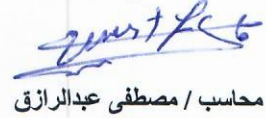 محاسب / مصطفى عبدالرازق